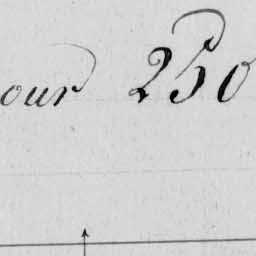 our 250